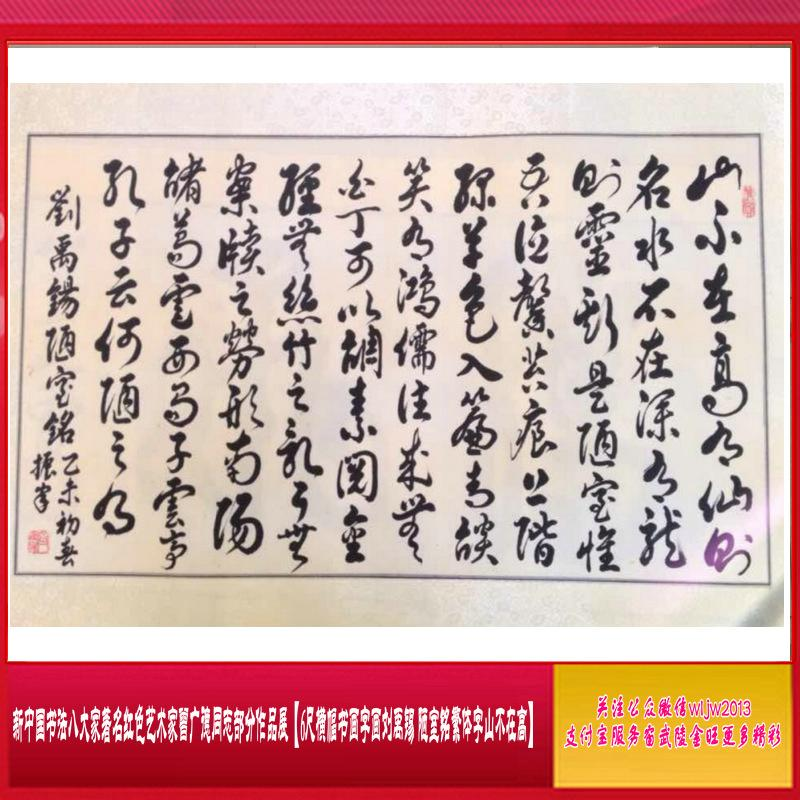 山不在高有仙則
名水不在深有龍
則靈斯是陋室惟
吾德馨苔痕上階
綠草色入簾青談
笑有鴻儒往來無
白丁可以調素閱金
經無絲竹之亂耳無
案牘之勞形南陽
諸葛廬西蜀子雲亭
孔子云何陋之有
劉禹錫陋室銘乙未初春
振
新中国书法八大家著名红色艺术家广同志部分作品展【6尺横幅书画字画刘禹锡 陋室铭繁体字山不在高】
关注公众微信wljw2013
支付宝服务窗武陵金旺更多精彩